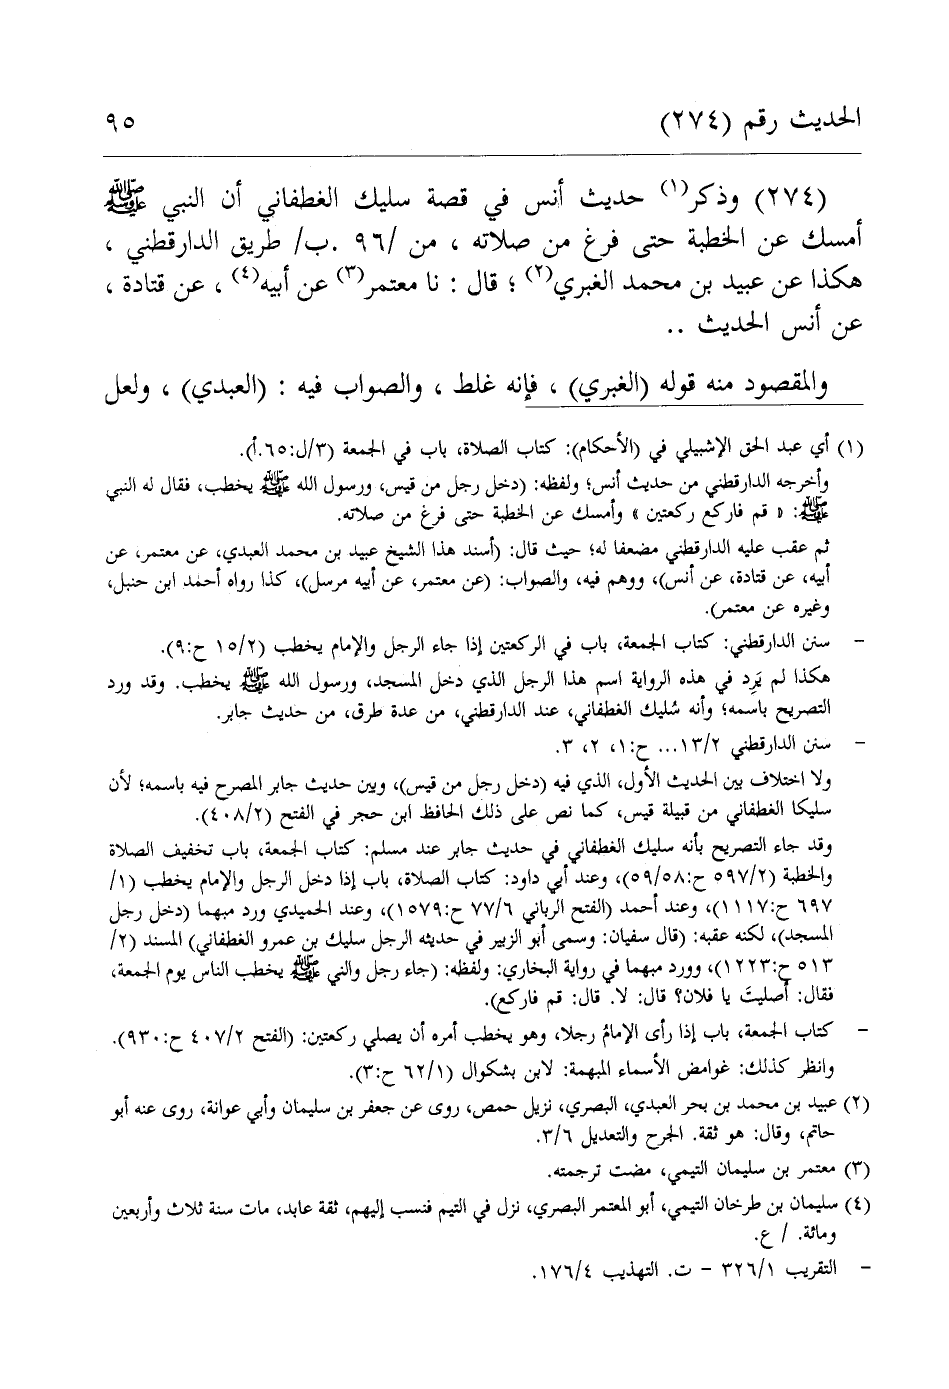 الحديث رقم (٢٧٤) ٩٥
(٢٧٤) وذكر(١) حديث أنس في قصة سليك الغطفاني أن النبي ﷺ
أمسك عن الخطبة حتى فرغ من صلاته ، من /٩٦ .ب/ طريق الدارقطني ،
هكذا عن عبيد بن محمد الغبري(٢) ؛ قال : نا معتمر(٣) عن أبيه(٤) ، عن قتادة ،
عن أنس الحديث ..
والمقصود منه قوله (الغبري) ، فإنه غلط ، والصواب فيه : (العبدي) ، ولعل
(١) أي عبد الحق الإشبيلي في (الأحكام): كتاب الصلاة، باب في الجمعة (٣/ل:٦٥.أ).
وأخرجه الدارقطني من حديث أنس؛ ولفظه: (دخل رجل من قيس، ورسول الله ﷺ يخطب، فقال له النبي
ﷺ: « قم فاركع ركعتين » وأمسك عن الخطبة حتى فرغ من صلاته.
ثم عقب عليه الدارقطني مضعفا له؛ حيث قال: (أسند هذا الشيخ عبيد بن محمد العبدي، عن معتمر، عن
أبيه، عن قتادة، عن أنس)، ووهم فيه، والصواب: (عن معتمر، عن أبيه مرسل)، كذا رواه أحمد ابن حنبل،
وغيره عن معتمر).
- سنن الدارقطني: كتاب الجمعة، باب في الركعتين إذا جاء الرجل والإمام يخطب (١٥/٢ ح:٩).
هكذا لم يَرِد في هذه الرواية اسم هذا الرجل الذي دخل المسجد، ورسول الله ﷺ يخطب. وقد ورد
التصريح باسمه؛ وأنه سُليك الغطفاني، عند الدارقطني، من عدة طرق، من حديث جابر.
- سنن الدارقطني ١٣/٢... ح:١، ٢، ٣.
ولا اختلاف بين الحديث الأول، الذي فيه (دخل رجل من قيس)، وبين حديث جابر المصرح فيه باسمه؛ لأن
سليكا الغطفاني من قبيلة قيس، كما نص على ذلك الحافظ ابن حجر في الفتح (٤٠٨/٢).
وقد جاء التصريح بأنه سليك الغطفاني في حديث جابر عند مسلم: كتاب الجمعة، باب تخفيف الصلاة
والخطبة (٥٩٧/٢ ح:٥٩/٥٨)، وعند أبي داود: كتاب الصلاة، باب إذا دخل الرجل والإمام يخطب (١/
٦٩٧ ح:١١١٧)، وعند أحمد (الفتح الرباني ٧٧/٦ ح:١٥٧٩)، وعند الحميدي ورد مبهما (دخل رجل
المسجد)، لكنه عقبه: (قال سفيان: وسمى أبو الزبير في حديثه الرجل سليك بن عمرو الغطفاني) المسند (٢/
٥١٣ ح:١٢٢٣)، وورد مبهما في رواية البخاري: ولفظه: (جاء رجل والنبي ﷺ يخطب الناس يوم الجمعة،
فقال: أصليتَ يا فلان؟ قال: لا. قال: قم فاركع).
- كتاب الجمعة، باب إذا رأى الإمامُ رجلا، وهو يخطب أمره أن يصلي ركعتين: (الفتح ٤٠٧/٢ ح:٩٣٠).
وانظر كذلك: غوامض الأسماء المبهمة: لابن بشكوال (٦٢/١ ح:٣).
(٢) عبيد بن محمد بن بحر العبدي، البصري، نزيل حمص، روى عن جعفر بن سليمان وأبي عوانة، روى عنه أبو
حاتم، وقال: هو ثقة. الجرح والتعديل ٣/٦.
(٣) معتمر بن سليمان التيمي، مضت ترجمته.
(٤) سليمان بن طرخان التيمي، أبو المعتمر البصري، نزل في التيم فنسب إليهم، ثقة عابد، مات سنة ثلاث وأربعين
ومائة. / ع.
- التقريب ٣٢٦/١ - ت. التهذيب ١٧٦/٤.